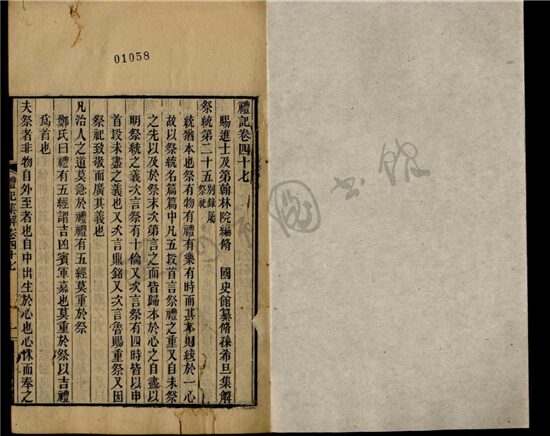 01058
禮記卷四十七
賜進士及第翰林院編脩 國史館纂脩孫希旦集解
祭統第二十五別錄屬祭祀
統猶本也祭有物有禮有樂有時而其本則統於一心
故以祭統名篇篇中凡五段首言祭禮之重又自未祭
之先以及於祭末次第言之而皆歸本於心之自盡以
明祭統之義次言祭有十倫又次言祭有四時皆以申
首段未盡之義也又次言鼎銘又次言魯賜重祭又因
祭祀致敬而廣其義也
凡治人之道莫急於禮禮有五經莫重於祭
鄭氏曰禮有五經謂吉凶賓軍嘉也莫重於祭以吉禮
為首也
夫祭者非物自外至者也自中出生於心也心怵而奉之
禮記集解卷四十七